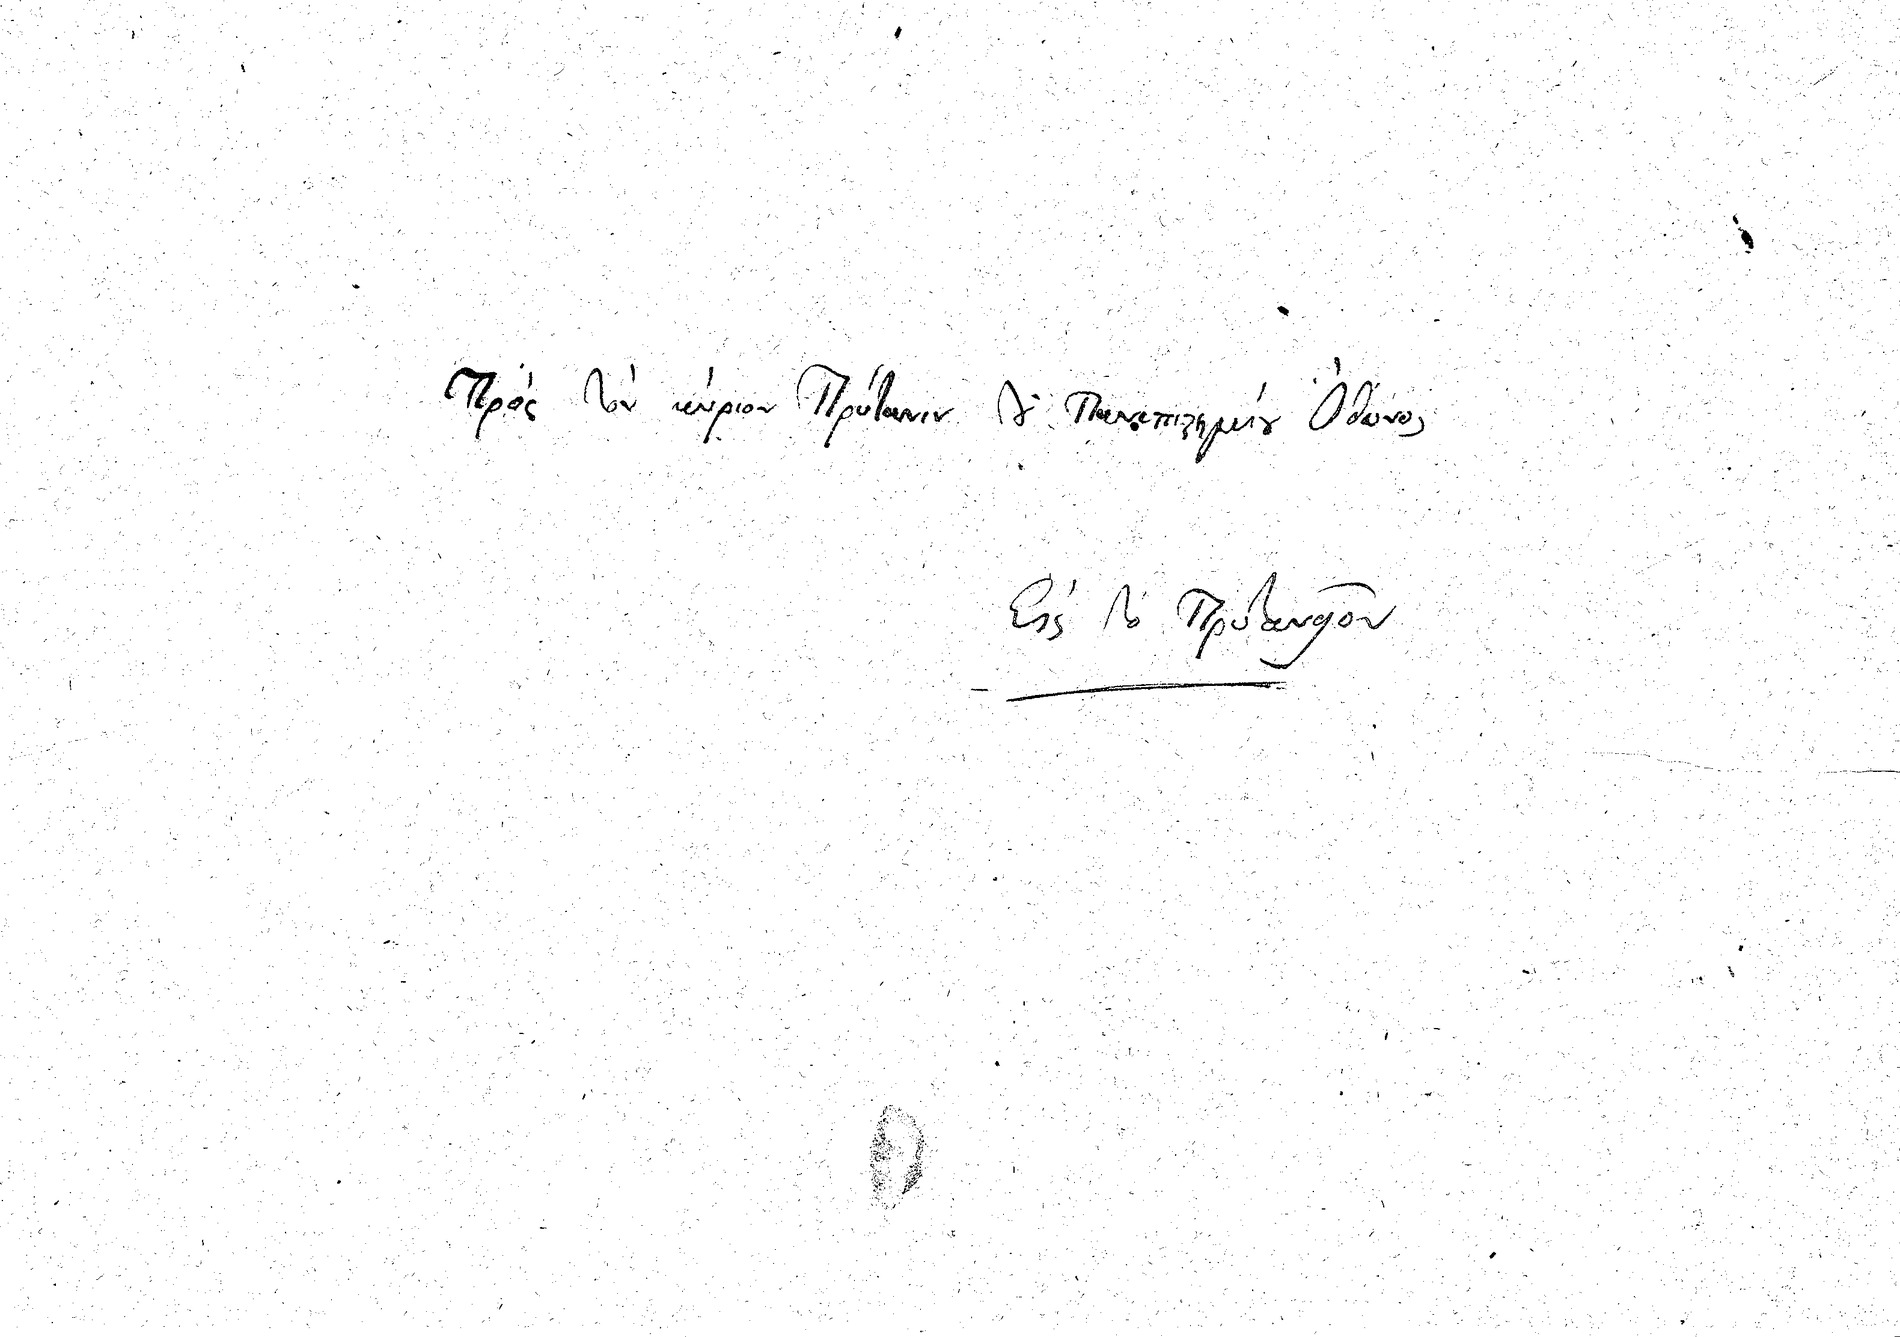 Πρὸς τὸν κύριον Πρύτανιν τȣ͂ Πανεπιϛημίȣ Ὄθωνος
Εἰς τὸ Πρυτανεῖον